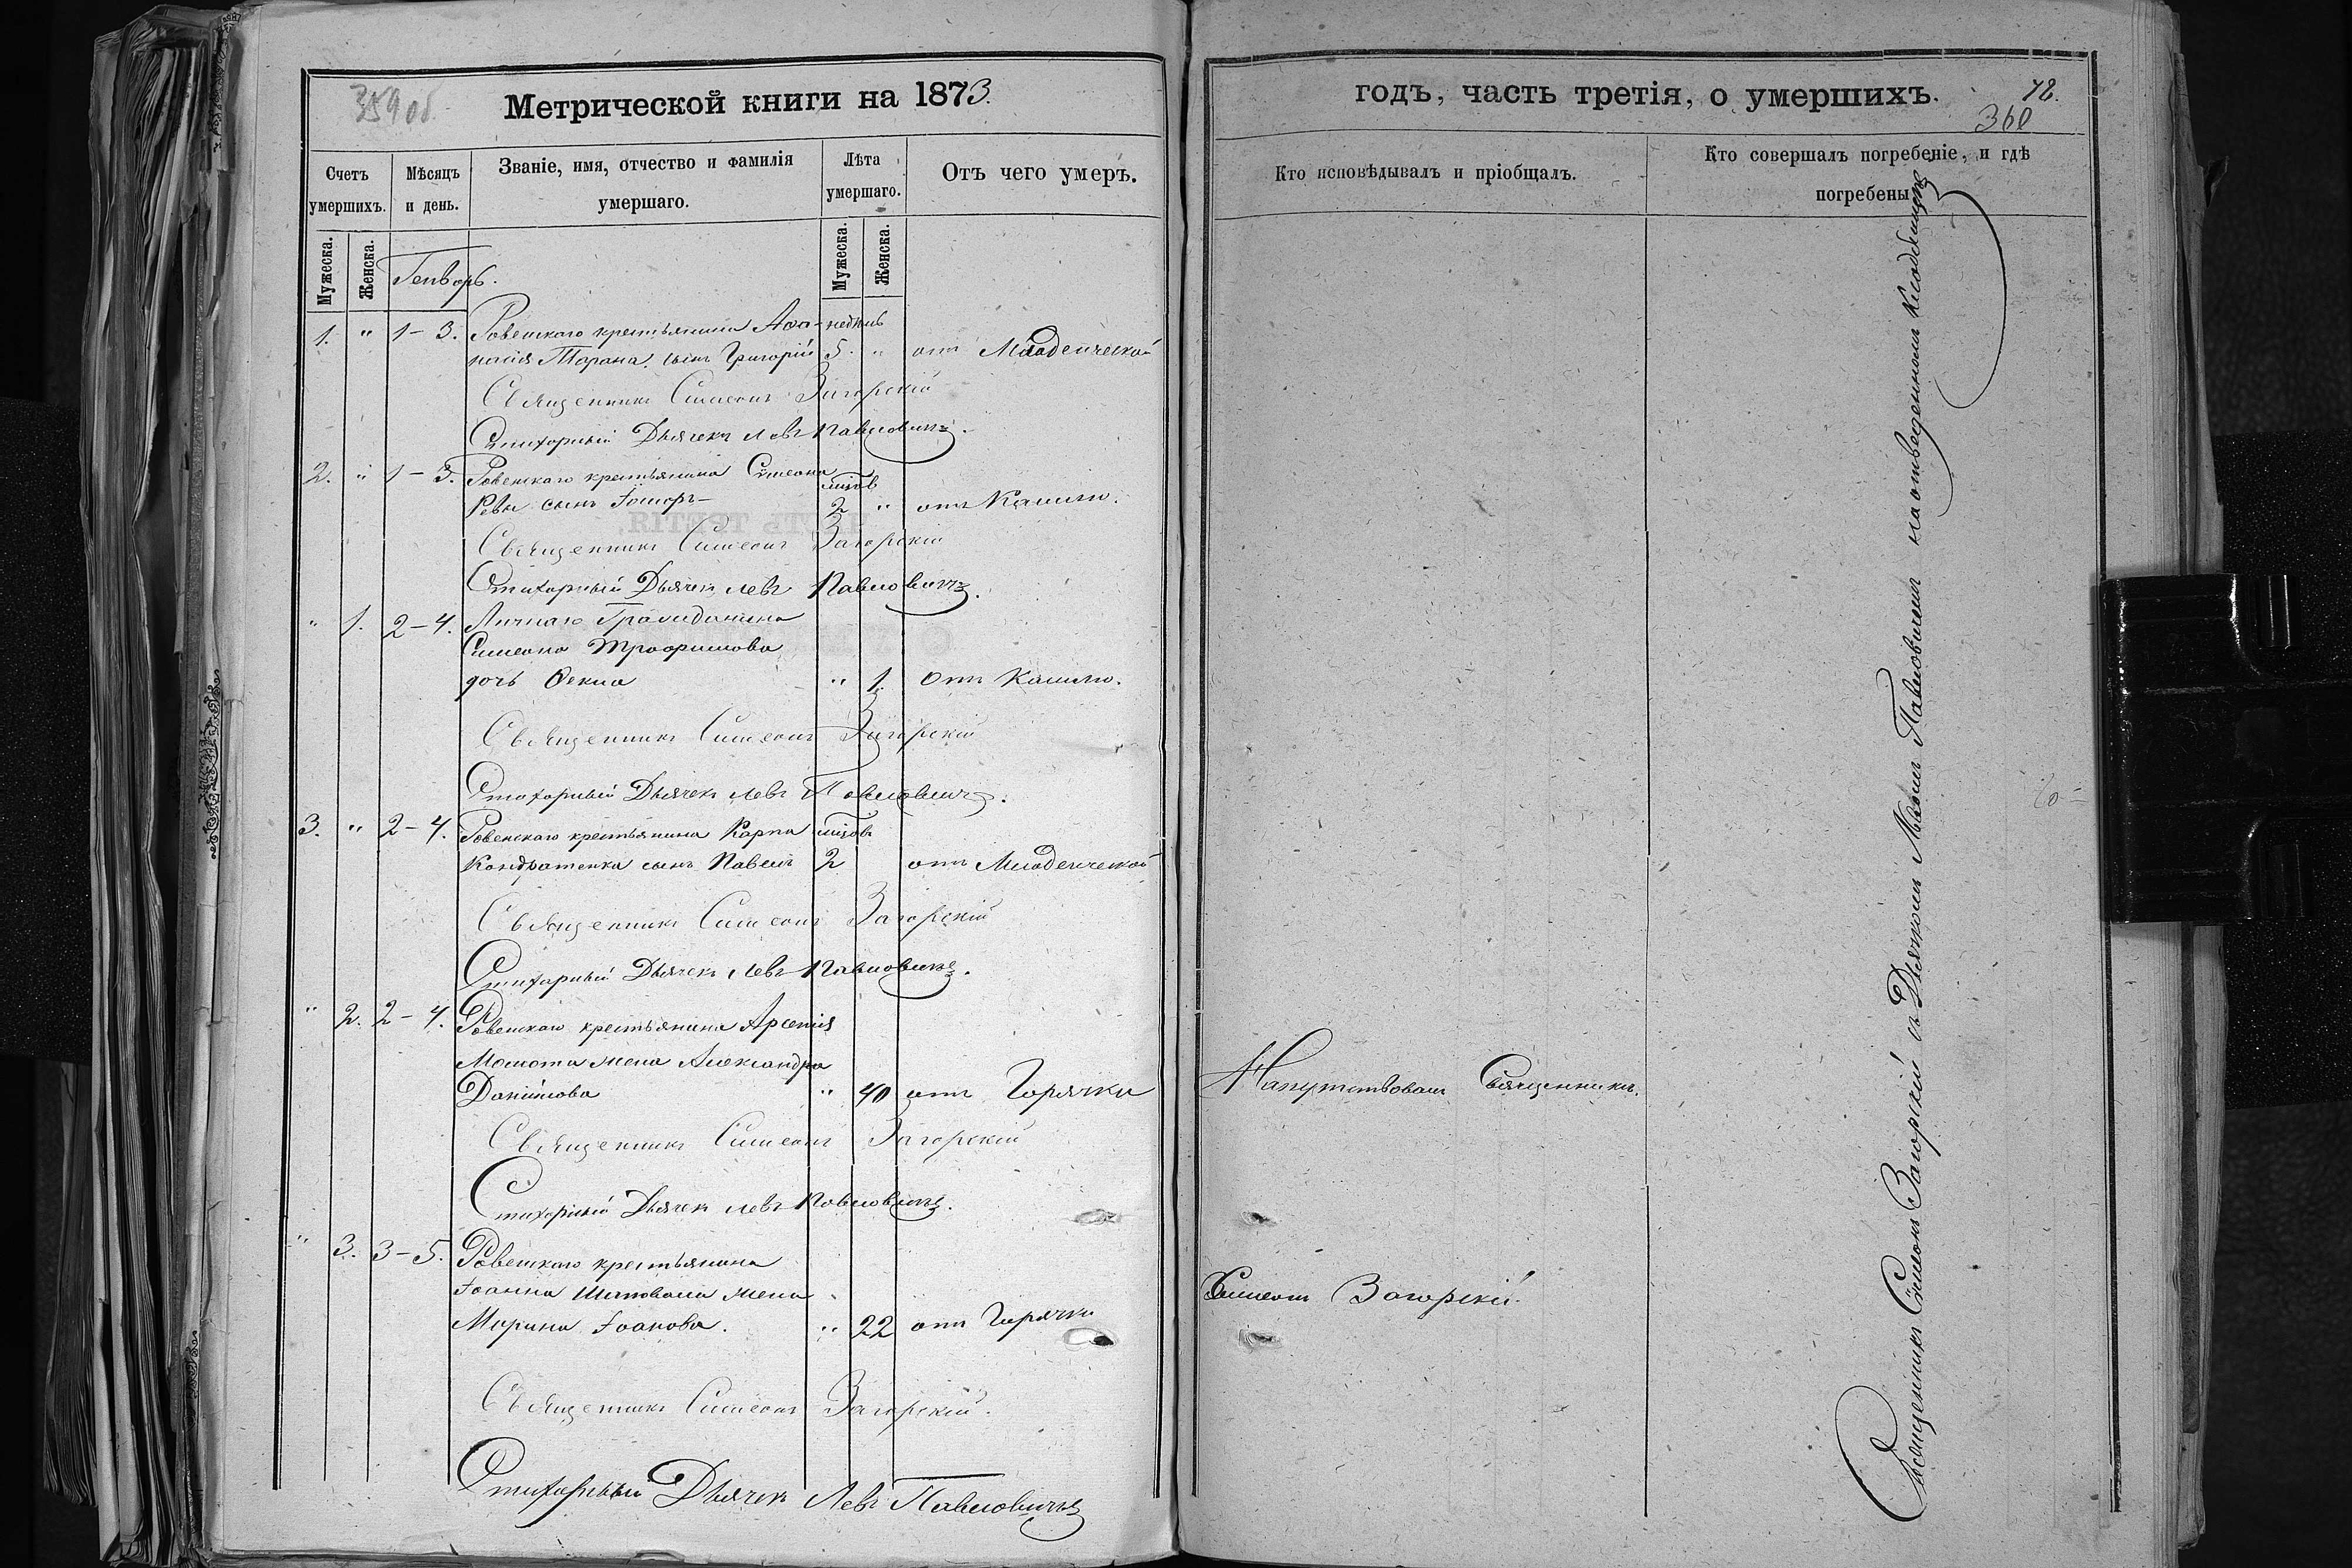 359 об.
Метрической книги на 1873.
Счетъ умершихъ.
Мѣсяцъ и день.
Званіе, имя, отчество и фамилія умершаго.
Лѣта умершаго.
Отъ чего умеръ.
Мужеска.
Женска.
Мужеска.
Женска.
Генворь.
1. " 1-3. Ровенскаго крестьянина Афа- недѣль
насія Тарана сынъ Григорій 5. " отъ Младенческой
Священникъ Симеонъ Загорскій
Стихорный Дьячекъ Левъ Павловичъ.
2. " 1-3. Ровенскаго крестьянина Сѵмеона
Ревы сынъ мцов 2 " отъ Кашлю.
Священникъ Симеонъ Загорскій
Стихорный Дьячекъ Левъ Павловичъ.
" 1. 2-4. Личнаго Гражданина
Симеона Трофимова
дочь Ѳекла " 1. отъ Кашлю.
Священникъ Симеонъ Загорскій
Стихорный Дьячекъ Левъ Павловичъ.
3. " 2-4. Ровенскаго крестьянина Карпа мцов
Кондратенка сынъ Павелъ 2 отъ Младенческой
Священникъ Симеонъ Загорскій
Стихарный Дьячекъ Левъ Павловичъ.
" 2. 2-4. Ровенскаго крестьянина Арсенія
жена Александра
Даніилова " 40 отъ Горячки
Священникъ Симеонъ Загорскій
Стихорный Дьячек Левъ Павловичъ.
" 3. 3-5. Ровенскаго крестьянина
Іоанна Шаповала жена
Марина Іоанова. " 22 отъ Горячки
Священникъ Симеонъ Загорскій.
Стихорный Дьячекъ Левъ Павловичъ
годъ, часть третія, о умершихъ.
360
Кто исповѣдывалъ и пріобщалъ.
Кто совершалъ погребеніе, и гдѣ
погребены
Напутствовалъ Священникъ
Симеонъ Загорскій.
Священникъ Сѵмеонъ Загорскій съ Дьячкомъ Львомъ Павловичемъ на отведенномъ Кладбищѣ